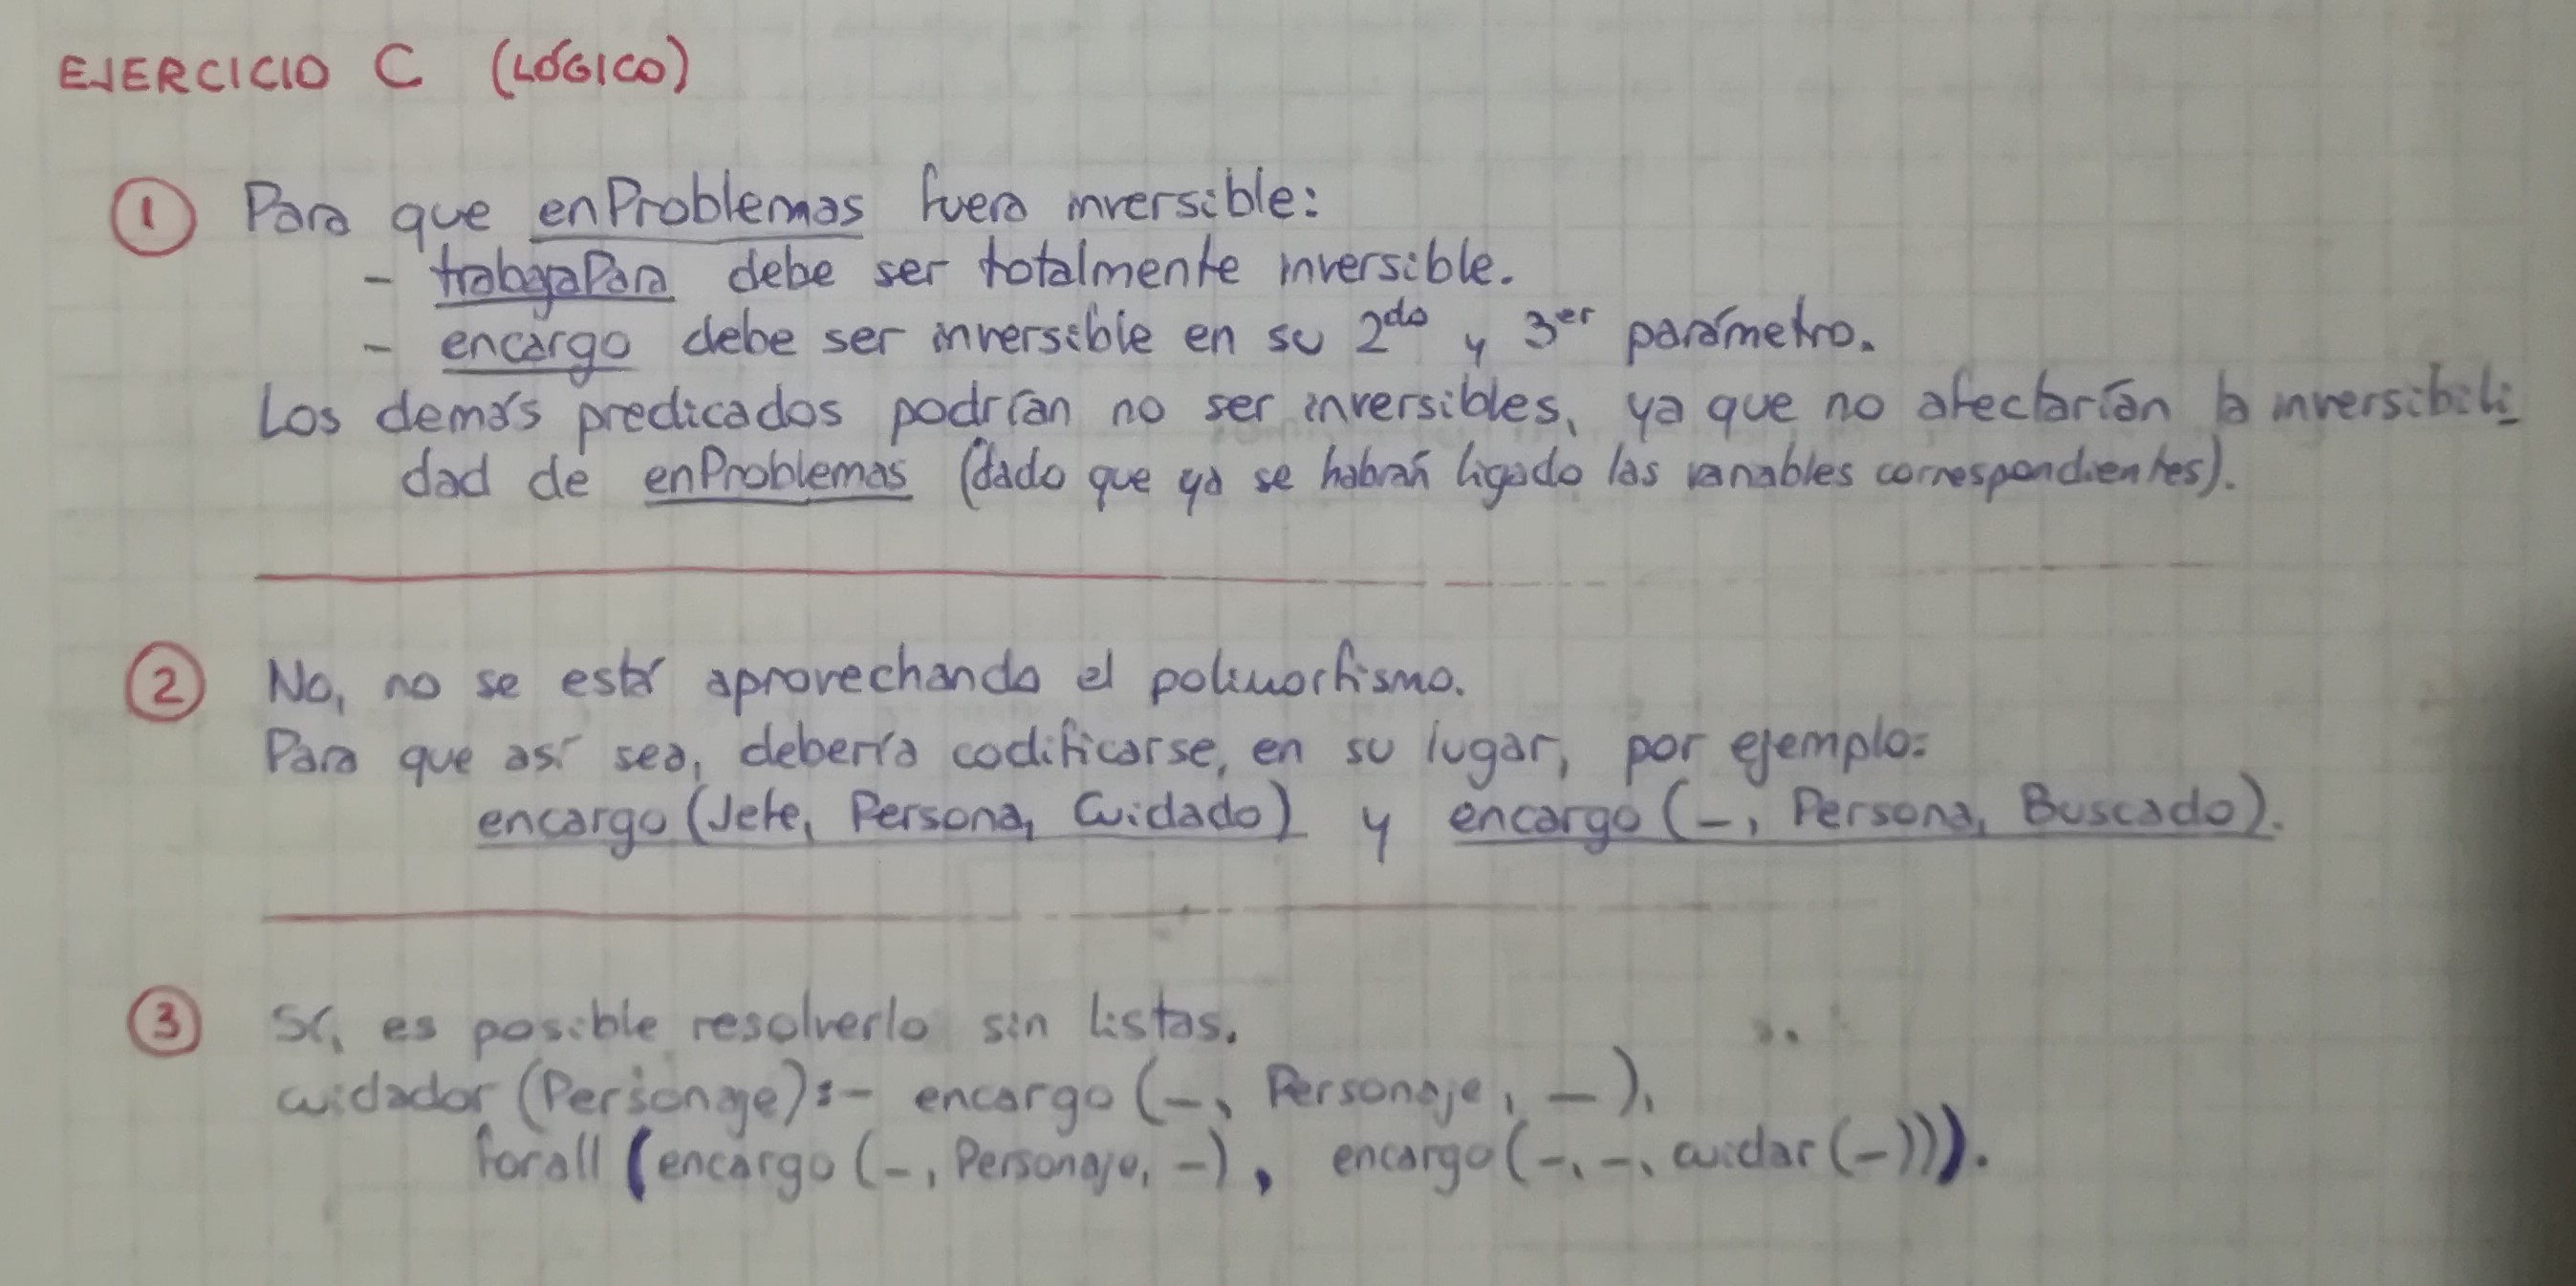 EJERCICIO C (LÓGICO)
① Para que enProblemas fuera inversible:
- trabajaPara debe ser totalmente inversible.
- encargo debe ser inversible en su 2do y 3er parámetro.
Los demás predicados podrían no ser inversibles, ya que no afectarían la inversibili_
dad de enProblemas (dado que ya se habrán ligado las variables correspondientes).
② No, no se está aprovechando el polimorfismo.
Para que así sea, debería codificarse, en su lugar, por ejemplo:
encargo (Jefe, Persona, Cuidado) y encargo (_, Persona, Buscado).
③ Sí, es posible resolverlo sin listas.
cuidador (Personaje):- encargo (_, Personaje, _),
forall (encargo (_, Personaje, _), encargo (_, _, cuidar (_))).